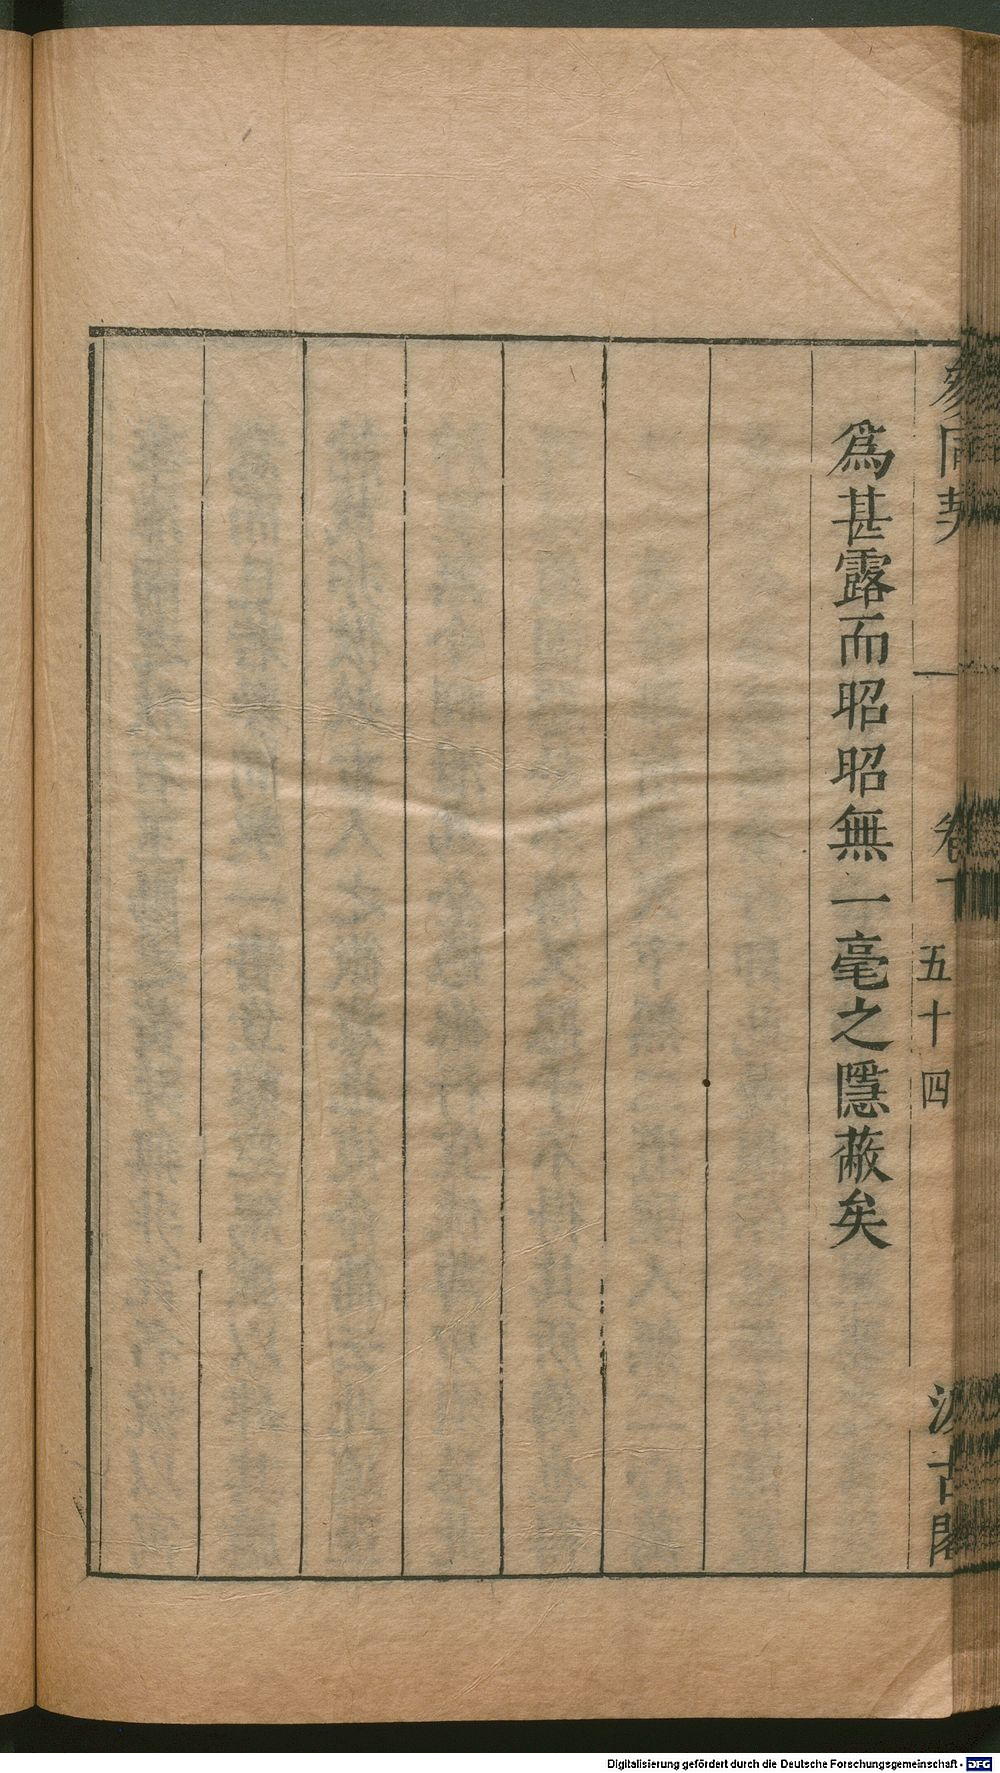 參同契
卷下
五十四
汲古閣
爲甚露而昭昭無一毫之隱蔽矣
Digitalisierung gefördert durch die Deutsche Forschungsgemeinschaft - DFG